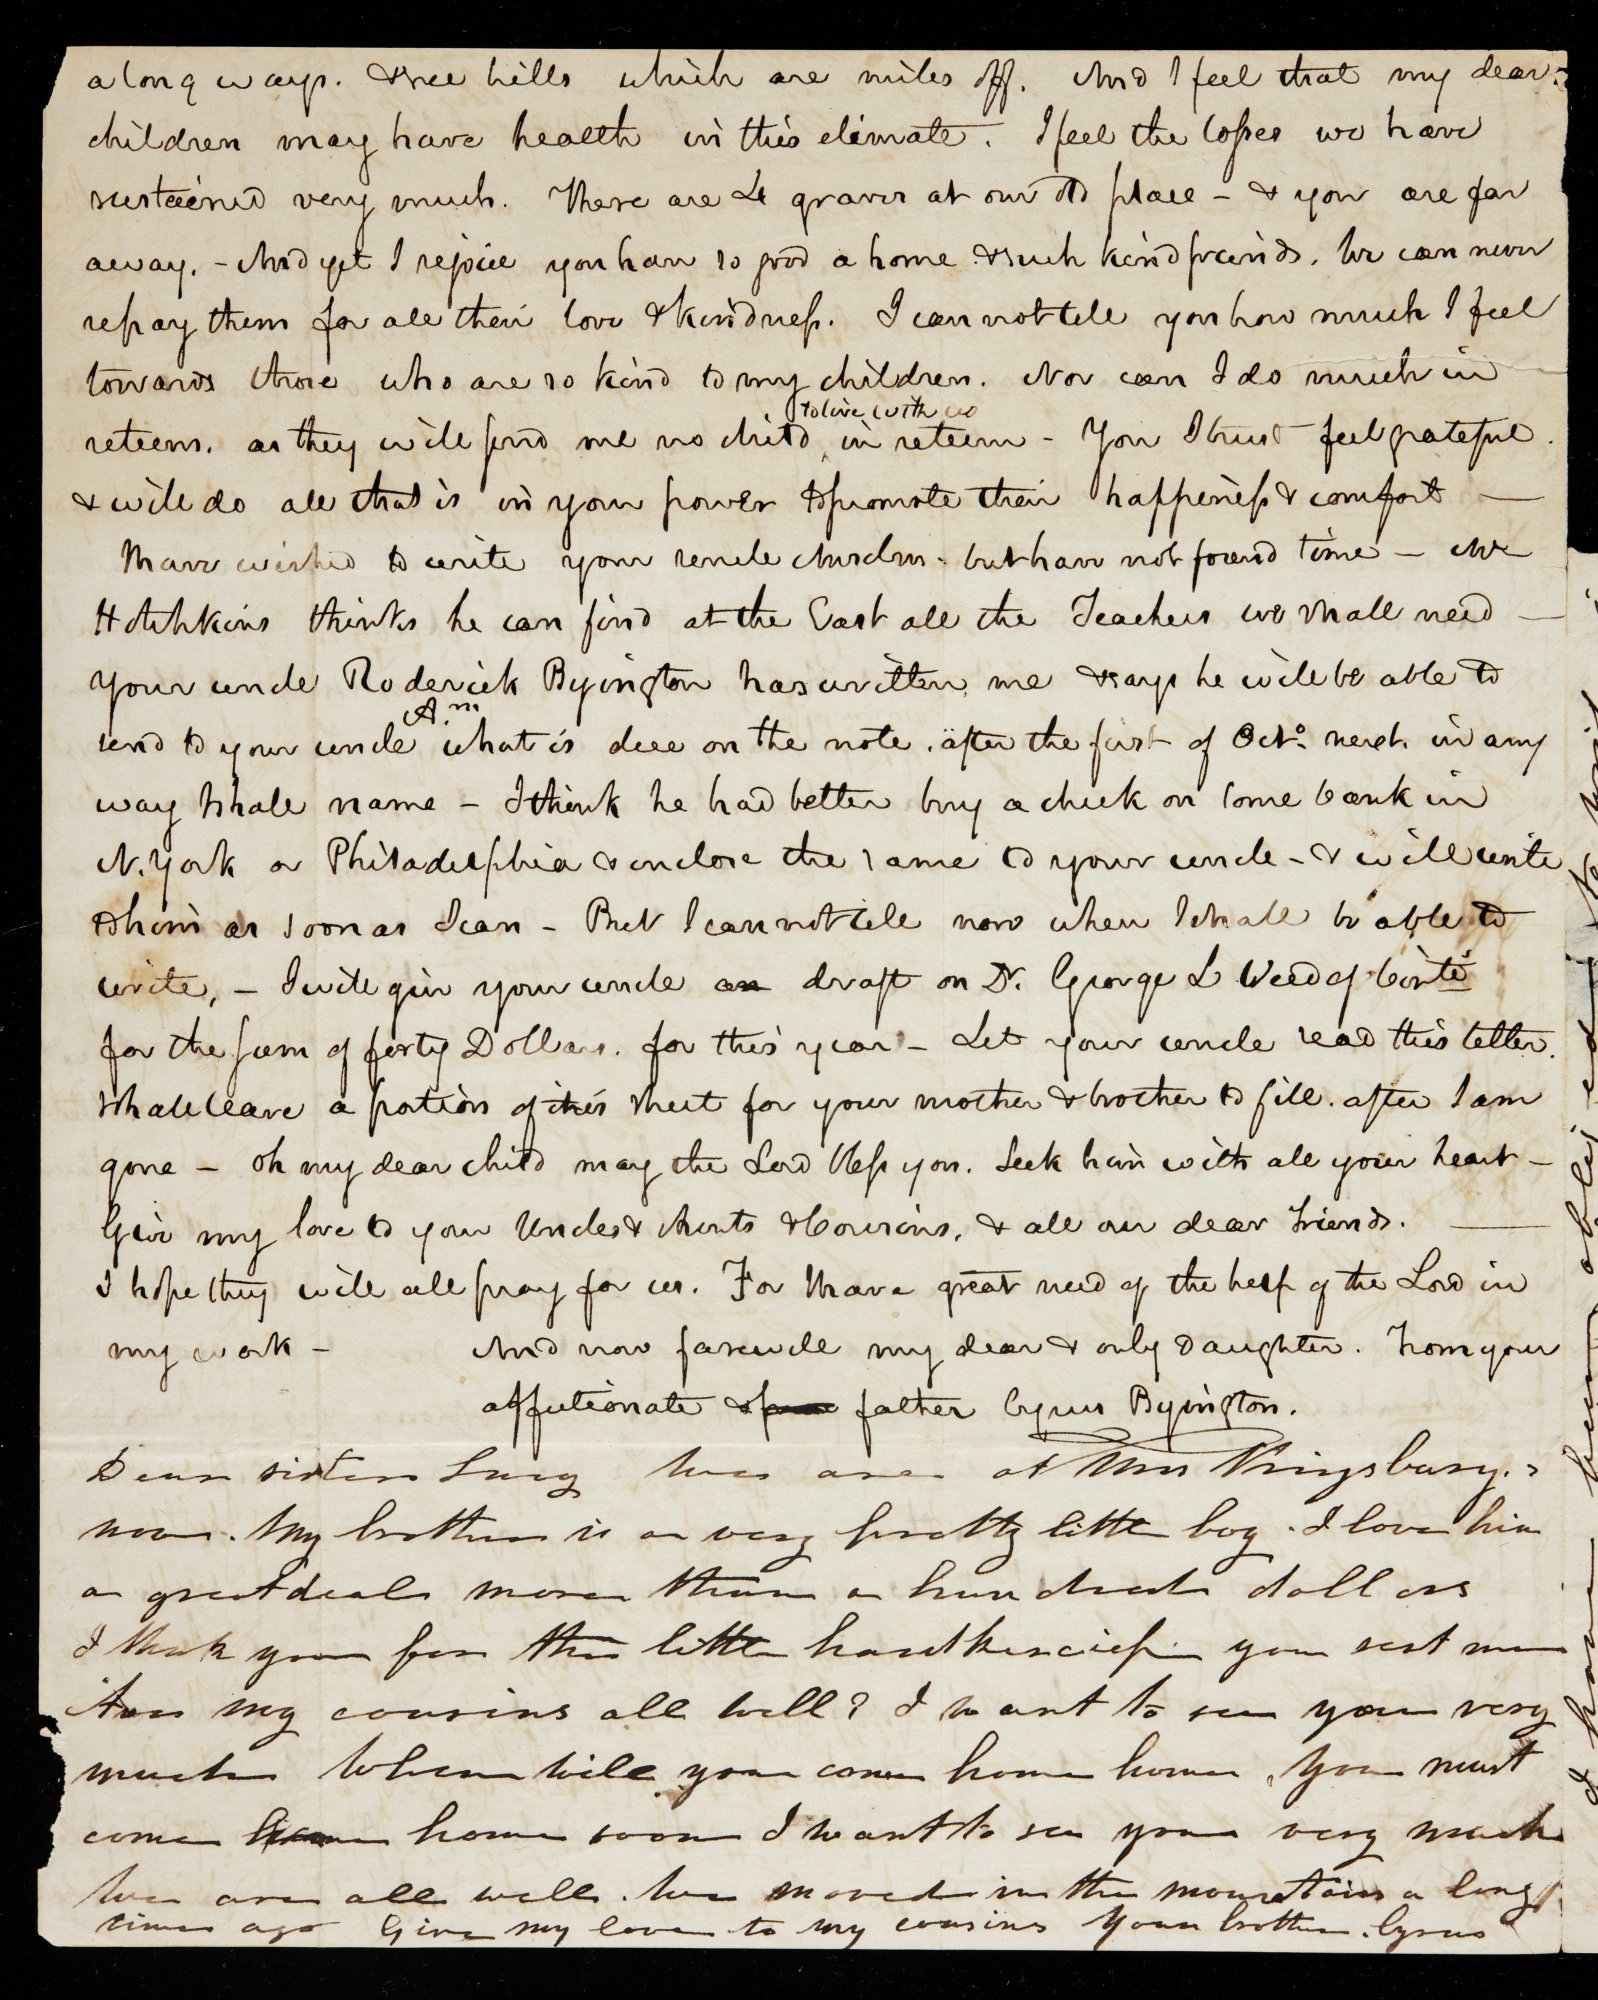 a long ways. & see hills which are miles off. And I feel that my dear
children may have health in this climate. I feel the losses we have
sustained very much. There are 4 graves at our old place - & you are far
away. - And yet I rejoice you have so good a home & such kind friends. We can never
repay them for all their love & kindness. I can not tell you how much I feel
towards those who are so kind to my children. Nor can I do much in
to live with us
return. as they will send me no child in return - You I trust feel grateful.
& will do all that is in your power to promote their happiness & comfort -
I have wished to write your uncle Anselm - but have not found time - Mr
Hotchkins thinks he can find at the East all the Teachers we shall need -
your uncle Roderick Byington has written me & says he will be able to
A.m
send to your uncle what is due on the note. after the first of Oct. next. in any
way I shall name - I think he had better buy a check on some bank in
N. York or Philadelphia & inclose the same to your uncle - & will write
to him as soon as I can - But I can not tell now when I shall be able to
write, - I will give your uncle an draft on Dr. George L Weed of Cinti
for the sum of forty Dollars. for this year - Let your uncle read this letter.
I shall leave a portion of this sheet for your mother & brother to fill. after I am
gone - Oh my dear child may the Lord bless you. Seek him with all your heart -
Give my love to your Uncles & Aunts & Cousins, & all our dear friends.
I hope they will all pray for us. For I have great need of the help of the Lord in
my work - And now farewell my dear & only daughter. From your
affectionate & father Cyrus Byington.
Dear sister Lucy We are at Mrs Kingsbury.s
now. My brother is a very pretty little boy. I love him
a great deal more than a hundred dollars
I thank you for the little handkerchief you sent me
Are my cousins all well? I want to see you very
much When will you come home home, You must
come home soon I want to see you very much
We are all well. We moved in the mountains a long
time ago Give my love to my cousins Your brother. Cyrus